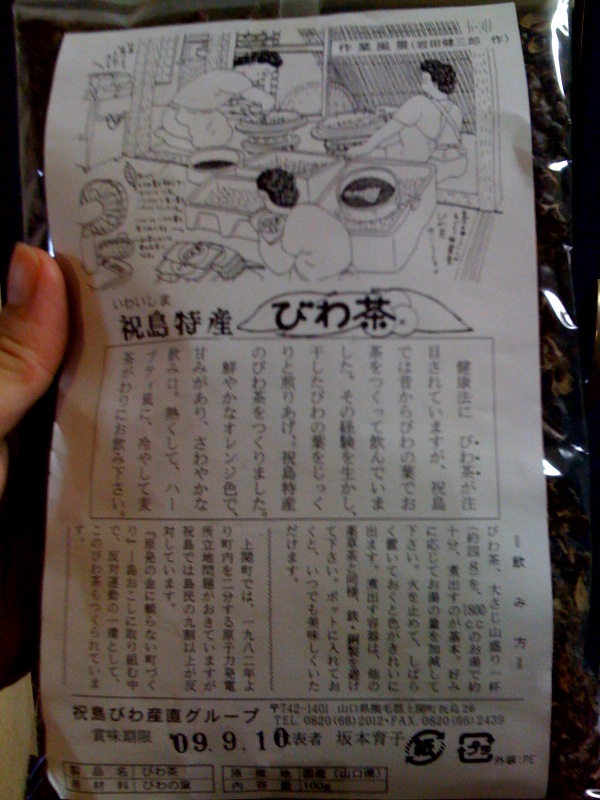 作業風景(岩田健三郎 作)
いわいしま
祝島特産 びわ茶
健康法に びわ茶が注
目されていますが、祝島
では昔からびわの葉でお
茶をつくって飲んでいま
した。その経験を生かし、
干したびわの葉をじっく
りと煎りあげ、祝島特産
のびわ茶をつくりました。
鮮やかなオレンジ色で、
甘みがあり、さわやかな
飲み口。熱くして、ハー
ブティ風に、冷やして麦
茶がわりにお飲み下さい。
＝飲み方＝
びわ茶、大さじ山盛り一杯
(約四g)を、1800ccのお湯で約
十分、煮出すのが基本。好み
に応じてお湯の量を加減して
下さい。火を止めて、しばら
く置いておくと色がきれいに
出ます。煮出す容器は、他の
薬草茶と同様、鉄・銅製を避け
て下さい。ポットに入れてお
くと、いつでも美味しくいた
だけます。
上関町では、一九八二年よ
り町内を二分する原子力発電
所立地問題がおきていますが
祝島では島民の九割以上が反
対しています。
『原発の金に頼らない町づく
り』―島おこしに取り組む中
で、反対運動の一環として、
このびわ茶もつくられていま
す。
祝島びわ産直グループ
〒742-1401 山口県熊毛郡上関町祝島26
TEL. 0820(66)2012・FAX. 0820(66)2439
賞味期限 09.9.10 代表者 坂本育子
紙 プラ 外装:PE
製品名 びわ茶
原材料 びわの葉
原産地 国産(山口県)
内容量 100g